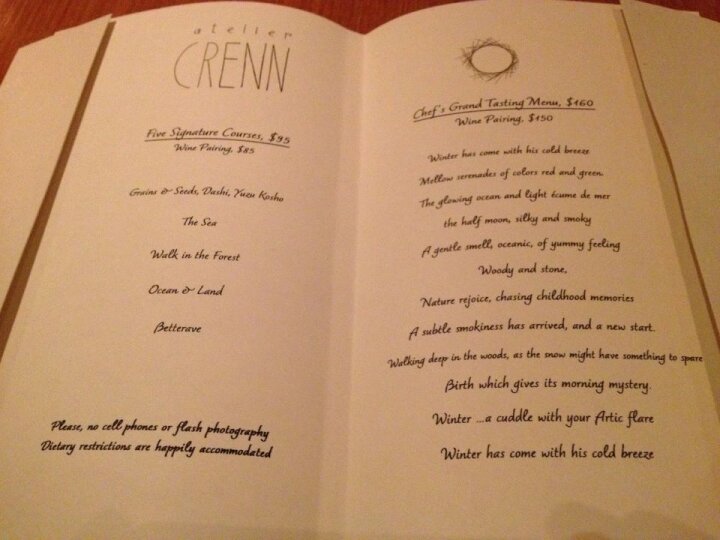 atelier
CRENN
Five Signature Courses, $95
Wine Pairing, $85
Grains & Seeds, Dashi, Yuzu Kosho
The Sea
Walk in the Forest
Ocean & Land
Betterave
Please, no cell phones or flash photography
Dietary restrictions are happily accommodated
Chef's Grand Tasting Menu, $160
Wine Pairing, $150
Winter has come with his cold breeze
Mellow serenades of colors red and green.
The glowing ocean and light écume de mer
the half moon, silky and smoky
A gentle smell, oceanic, of yummy feeling
Woody and stone,
Nature rejoice, chasing childhood memories
A subtle smokiness has arrived, and a new start.
Walking deep in the woods, as the snow might have something to spare
Birth which gives its morning mystery.
Winter ...a cuddle with your Artic flare
Winter has come with his cold breeze